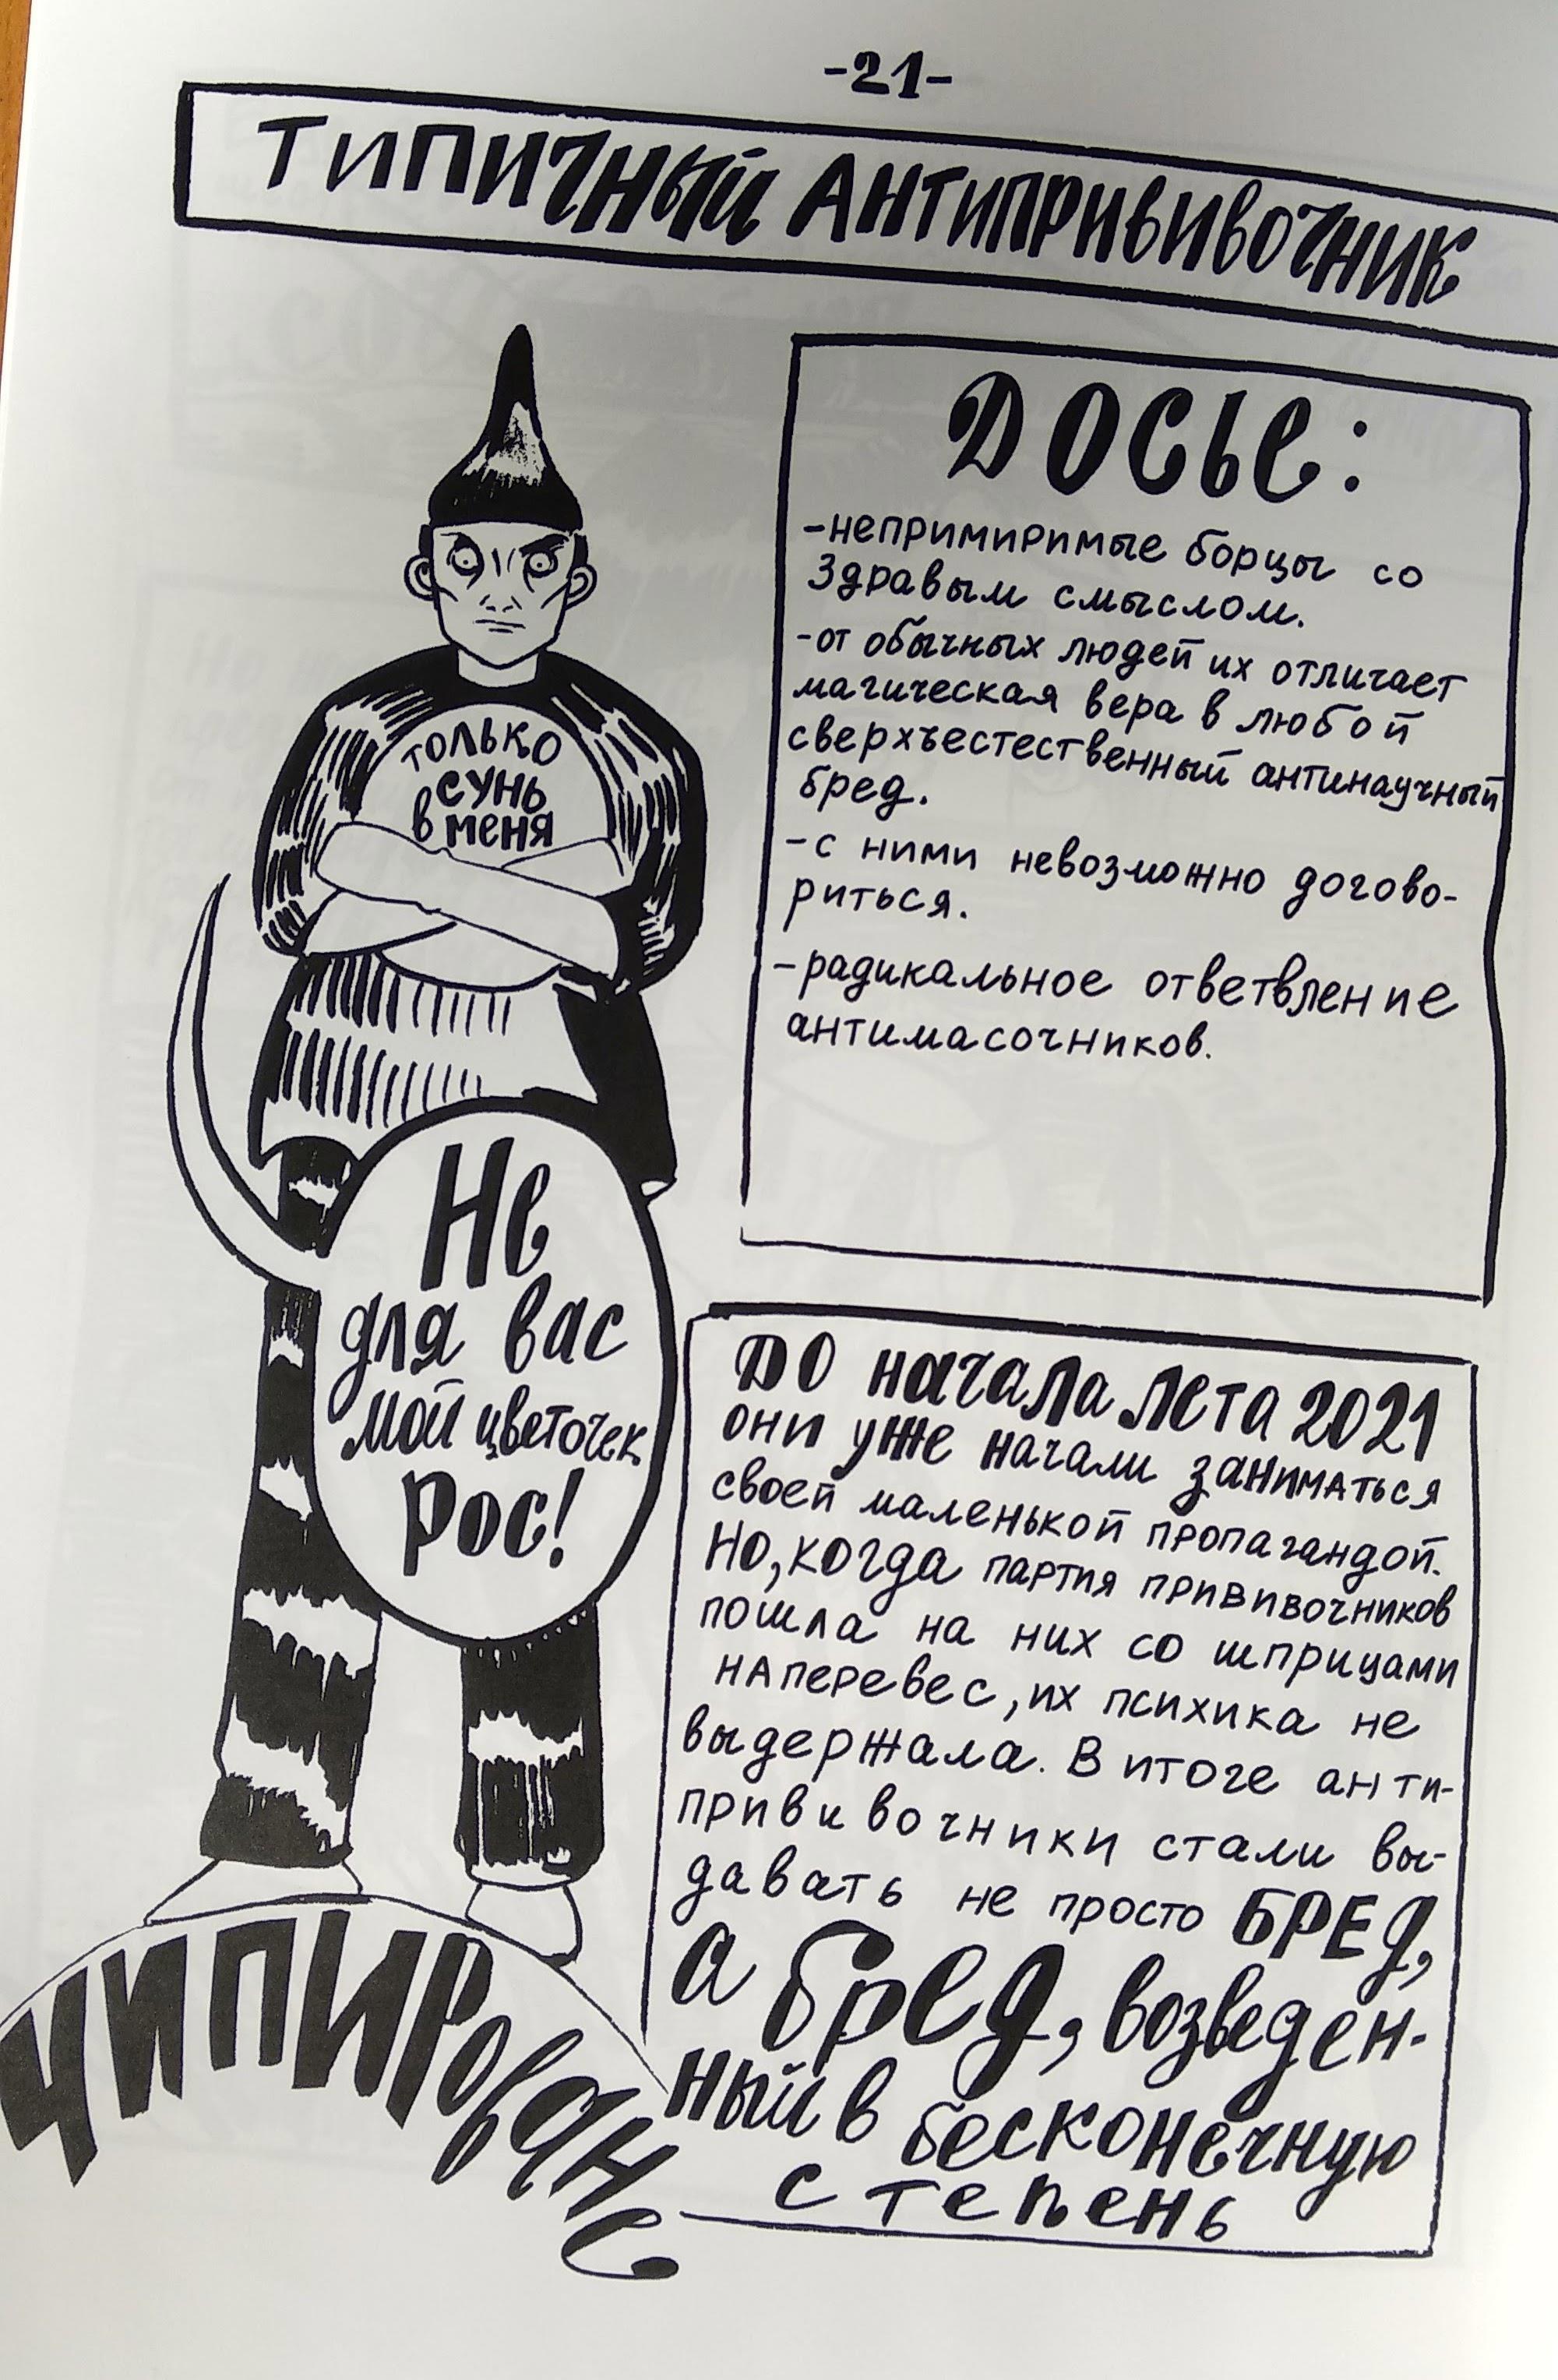 -21-
ТИПИЧНЫЙ АНТИПРИВИВОЧНИК
ДОСЬЕ:
-непримиримые борцы со
здравым смыслом.
-от обычных людей их отличает
магическая вера в любой
сверхъестественный антинаучный
бред.
-с ними невозможно догово-
риться.
-радикальное ответвление
антимасочников.
только
сунь
в меня
Не
для вас
мой цветочек
рос!
До начала лета 2021
они уже начали заниматься
своей маленькой пропагандой.
Но, когда партия прививочников
пошла на них со шприцами
наперевес, их психика не
выдержала. В итоге анти-
прививочники стали вы-
давать не просто БРЕД,
а бред, возведен-
ный в бесконечную
степень
ЧИПИРОВАНЕ